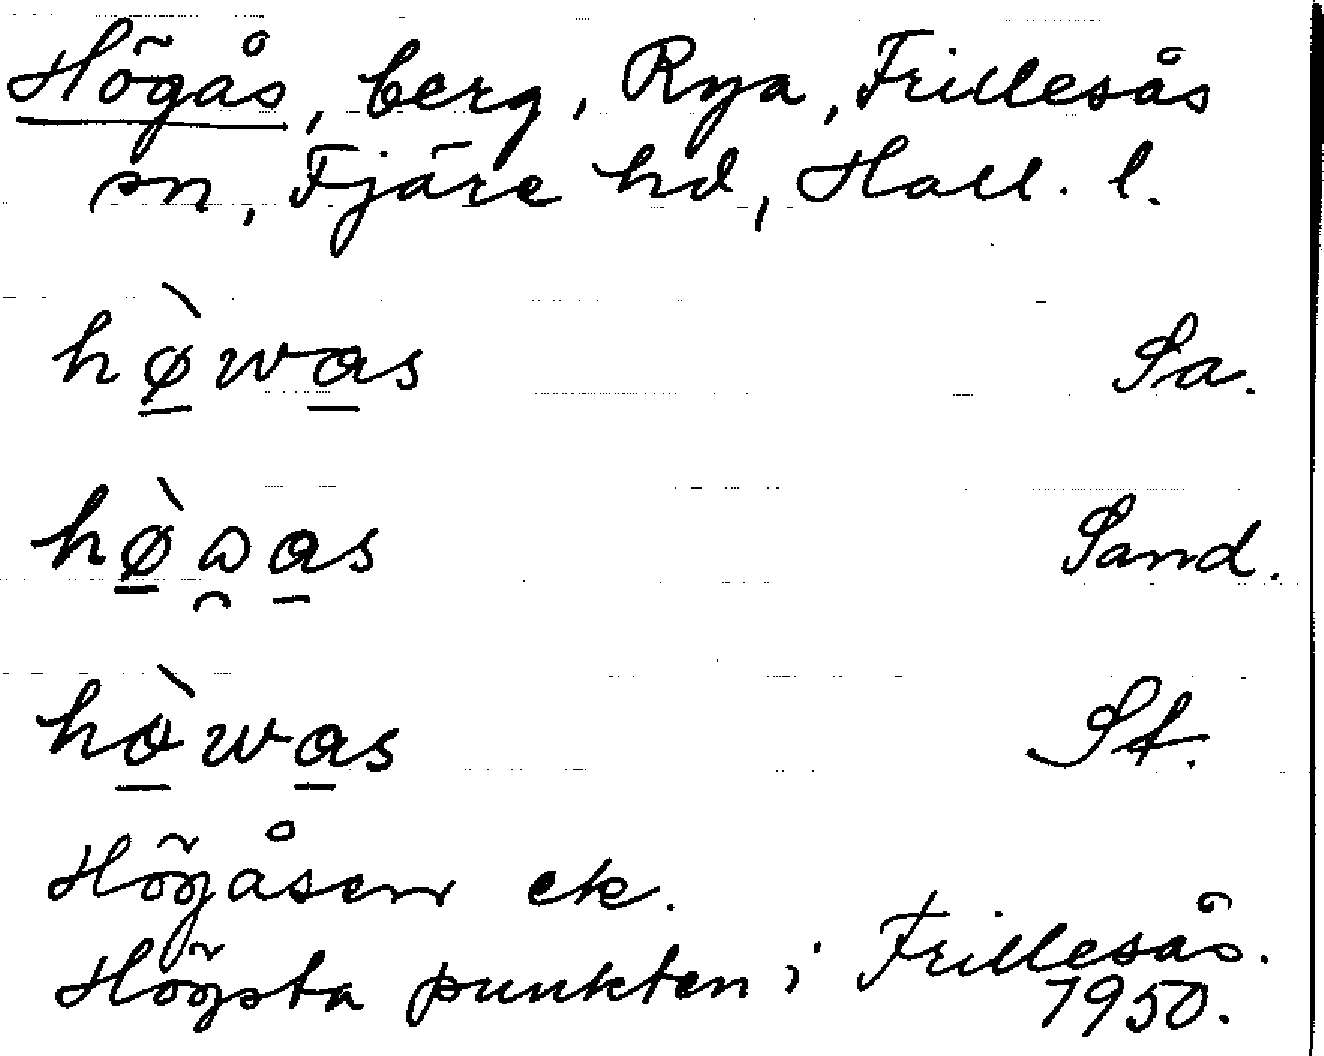 Högås, berg, Rya, Frillesås
sn, Fjäre hd, Hall. l.
hø̠̀wa̠s Sa.
hø̠̀ꞷ̯a̠s Sand.
hò̠wa̠s St.
Högåsen ek.
Högsta punkten i Frillesås.
1950.